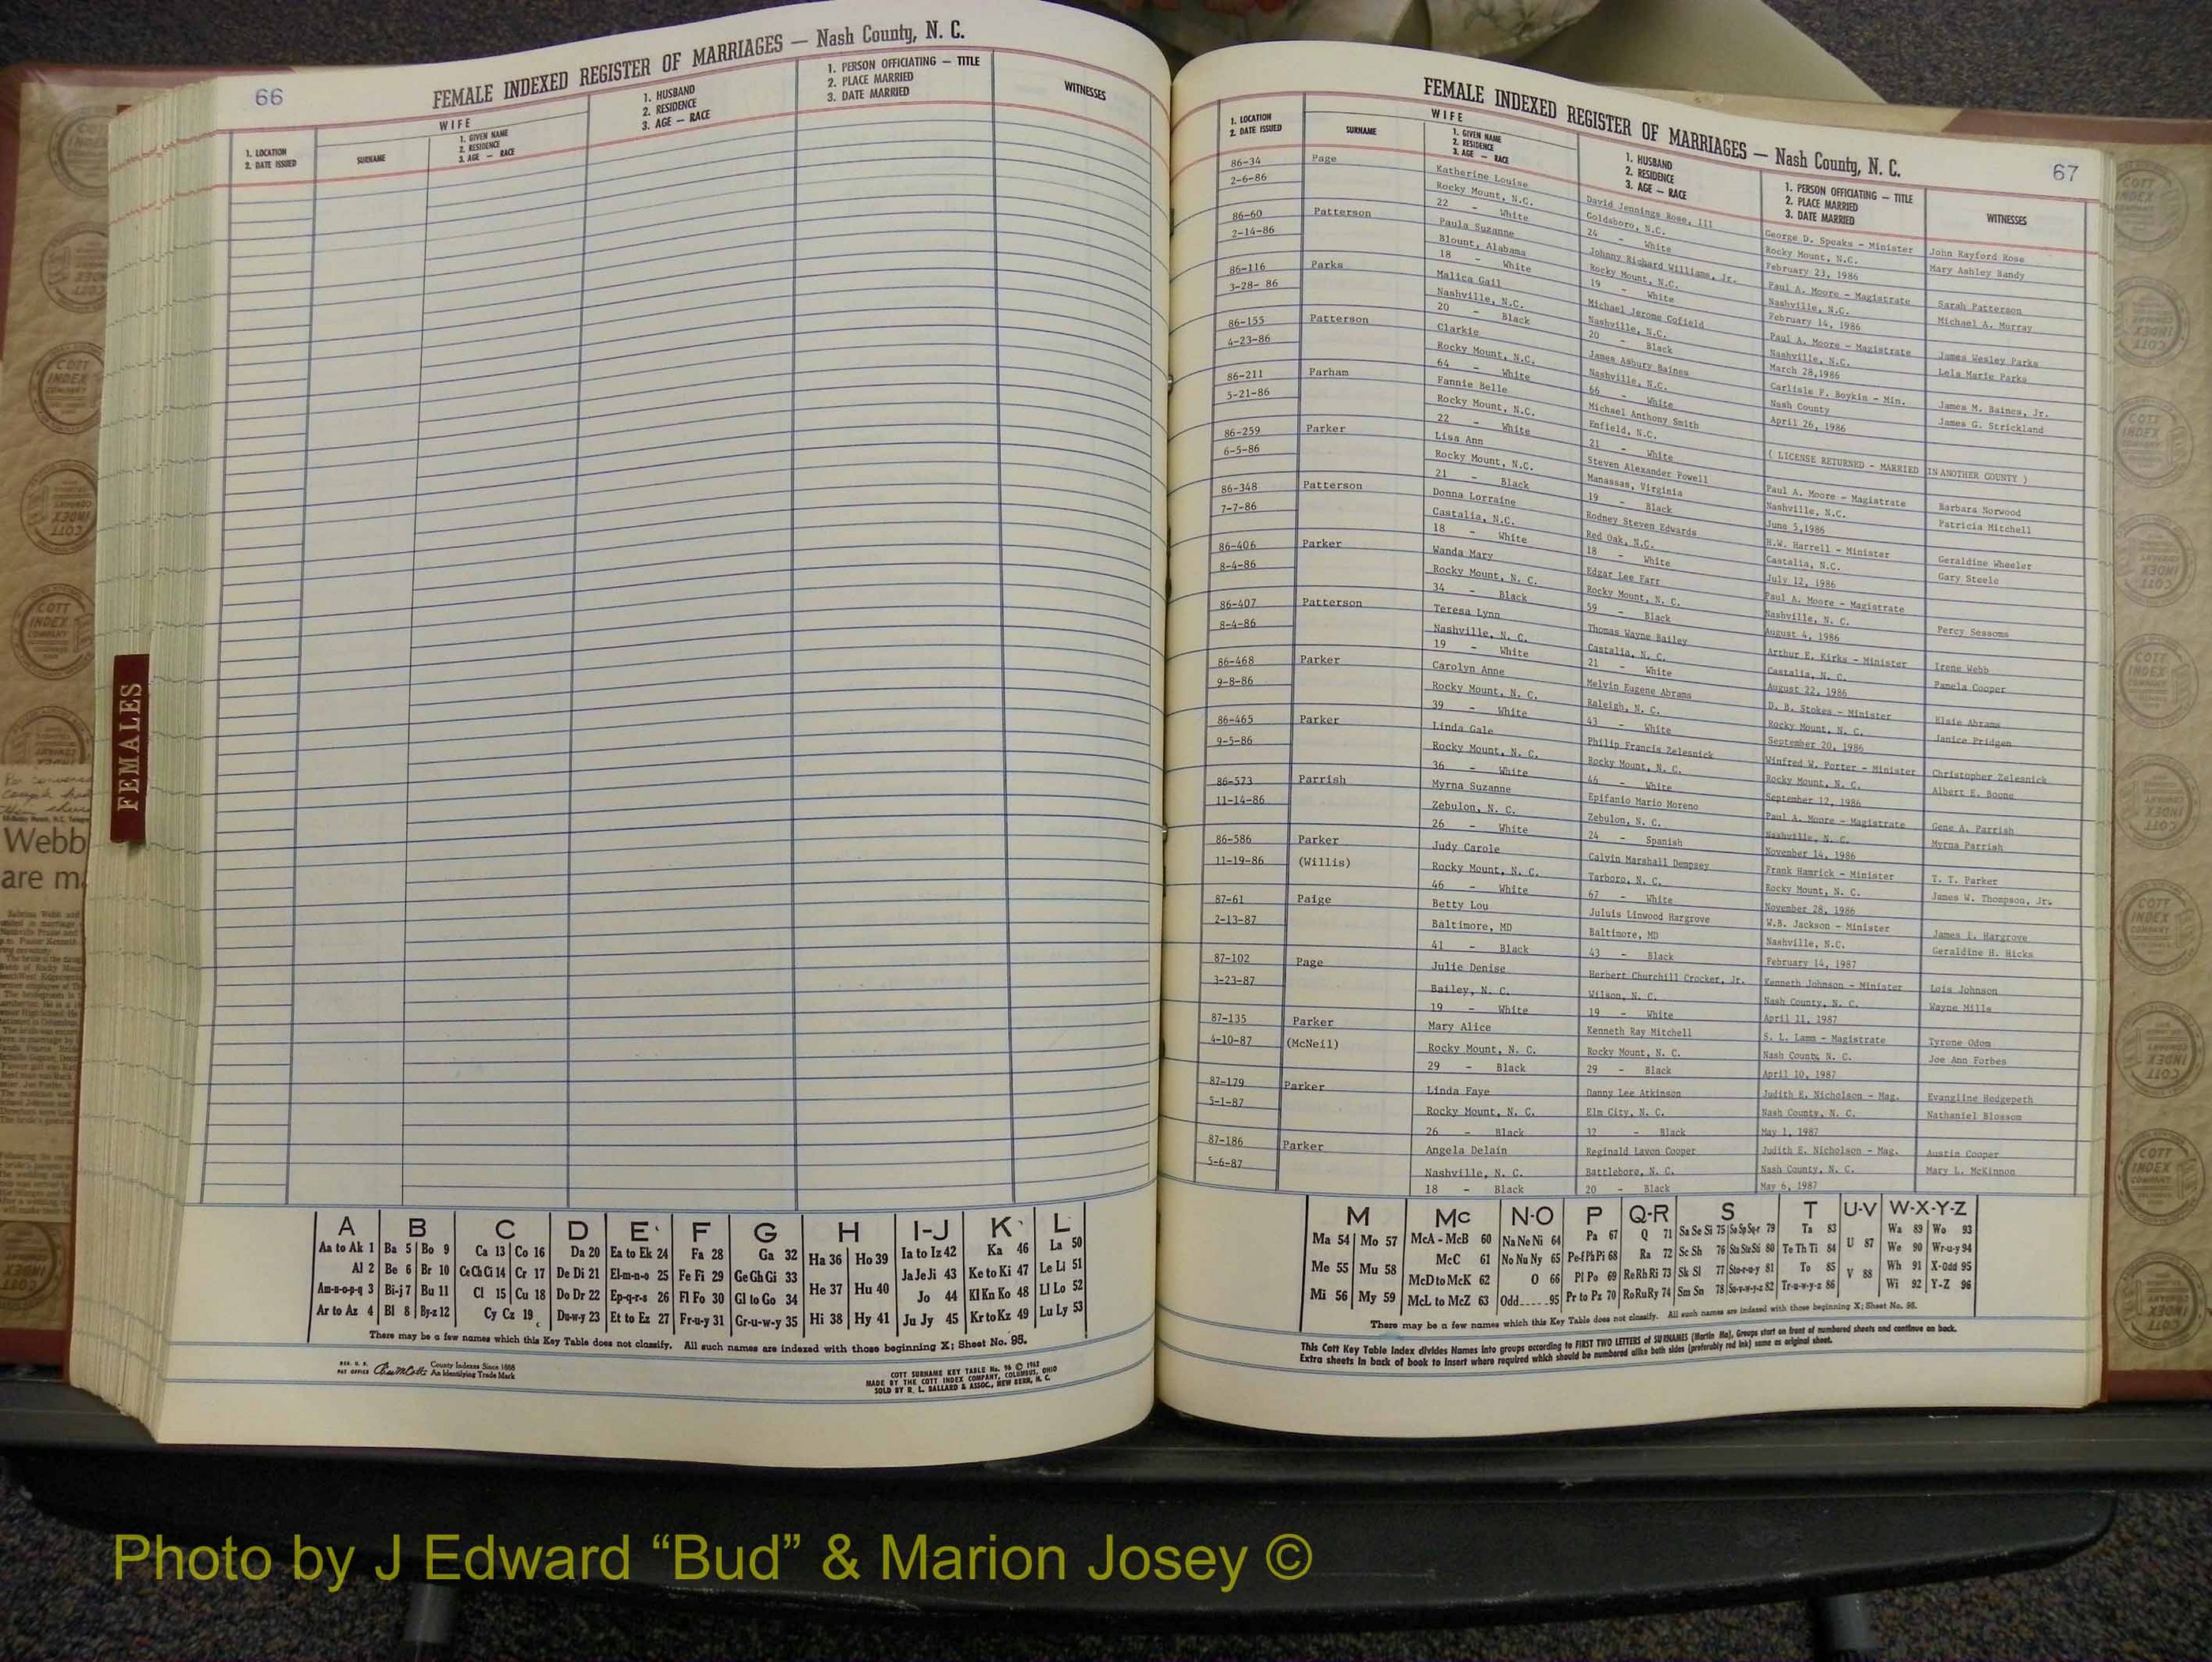 66
FEMALE INDEXED REGISTER OF MARRIAGES — Nash County, N. C.
1. LOCATION
2. DATE ISSUED
WIFE
SURNAME
1. GIVEN NAME
2. RESIDENCE
3. AGE — RACE
1. HUSBAND
2. RESIDENCE
3. AGE — RACE
1. PERSON OFFICIATING — TITLE
2. PLACE MARRIED
3. DATE MARRIED
WITNESSES
FEMALES
Webb
are ma
A B C D E F G H I-J K L
Aa to Ak 1 Ba 5 Bo 9 Ca 13 Co 16 Da 20 Ea to Ek 24 Fa 28 Ga 32 Ha 36 Ho 39 Ia to Iz 42 Ka 46 La 50
Al 2 Be 6 Br 10 Ce Ch Ci 14 Cr 17 De Di 21 El-m-n-o 25 Fe Fi 29 Ge Gh Gi 33 He 37 Hu 40 Ja Je Ji 43 Ke to Ki 47 Le Li 51
Am-n-o-p-q 3 Bi-j 7 Bu 11 Cl 15 Cu 18 Do Dr 22 Ep-q-r-s 26 Fl Fo 30 Gl to Go 34 Hi 38 Hy 41 Jo 44 Kl Kn Ko 48 Ll Lo 52
Ar to Az 4 Bl 8 By-z 12 Cy Cz 19 Du-w-y 23 Et to Ez 27 Fr-u-y 31 Gr-u-w-y 35 Ju Jy 45 Kr to Kz 49 Lu Ly 53
There may be a few names which this Key Table does not classify. All such names are indexed with those beginning X; Sheet No. 95.
REG. U. S.
PAT OFFICE
County Indexes Since 1888
An Identifying Trade Mark
COTT SURNAME KEY TABLE No. 96 © 1962
MADE BY THE COTT INDEX COMPANY, COLUMBUS, OHIO
SOLD BY R. L. BALLARD & ASSOC., NEW BERN, N. C.
FEMALE INDEXED REGISTER OF MARRIAGES — Nash County, N. C.
67
1. LOCATION
2. DATE ISSUED
WIFE
SURNAME
1. GIVEN NAME
2. RESIDENCE
3. AGE — RACE
1. HUSBAND
2. RESIDENCE
3. AGE — RACE
1. PERSON OFFICIATING — TITLE
2. PLACE MARRIED
3. DATE MARRIED
WITNESSES
86-34 Page Katherine Louise David Jennings Rose, III George D. Speaks - Minister John Rayford Rose
2-6-86 Rocky Mount, N.C. Goldsboro, N.C. Rocky Mount, N.C. Mary Ashley Bandy
22 - White 24 - White February 23, 1986
86-60 Patterson Paula Suzanne Johnny Richard Williams, Jr. Paul A. Moore - Magistrate Sarah Patterson
2-14-86 Blount, Alabama Rocky Mount, N.C. Nashville, N.C. Michael A. Murray
18 - White 19 - White February 14, 1986
86-116 Parks Malica Gail Michael Jerome Cofield Paul A. Moore - Magistrate James Wesley Parks
3-28- 86 Nashville, N.C. Nashville, N.C. Nashville, N.C. Lela Marie Parks
20 - Black 20 - Black March 28,1986
86-155 Patterson Clarkie James Asbury Baines Carlisle F. Boykin - Min. James M. Baines, Jr.
4-23-86 Rocky Mount, N.C. Nashville, N.C. Nash County James G. Strickland
64 - White 66 - White April 26, 1986
86-211 Parham Fannie Belle Michael Anthony Smith
5-21-86 Rocky Mount, N.C. Enfield, N.C. ( LICENSE RETURNED - MARRIED IN ANOTHER COUNTY )
22 - White 21 - White
86-259 Parker Lisa Ann Steven Alexander Powell Paul A. Moore - Magistrate Barbara Norwood
6-5-86 Rocky Mount, N.C. Manassas, Virginia Nashville, N.C. Patricia Mitchell
21 - Black 19 - Black June 5,1986
86-348 Patterson Donna Lorraine Rodney Steven Edwards H.W. Harrell - Minister Geraldine Wheeler
7-7-86 Castalia, N.C. Red Oak, N.C. Castalia, N.C. Gary Steele
18 - White 18 - White July 12, 1986
86-406 Parker Wanda Mary Edgar Lee Farr Paul A. Moore - Magistrate
8-4-86 Rocky Mount, N. C. Rocky Mount, N. C. Nashville, N. C. Percy Sessoms
34 - Black 59 - Black August 4, 1986
86-407 Patterson Teresa Lynn Thomas Wayne Bailey Arthur E. Kirks - Minister Irene Webb
8-4-86 Nashville, N. C. Castalia, N. C. Castalia, N. C. Pamela Cooper
19 - White 21 - White August 22, 1986
86-468 Parker Carolyn Anne Melvin Eugene Abrams D. B. Stokes - Minister Elsie Abrams
9-8-86 Rocky Mount, N. C. Raleigh, N. C. Rocky Mount, N. C. Janice Pridgen
39 - White 43 - White September 20, 1986
86-465 Parker Linda Gale Philip Francis Zelesnick Winfred W. Porter - Minister Christopher Zelesnick
9-5-86 Rocky Mount, N. C. Rocky Mount, N. C. Rocky Mount, N. C. Albert E. Boone
36 - White 46 - White September 12, 1986
86-573 Parrish Myrna Suzanne Epifanio Mario Moreno Paul A. Moore - Magistrate Gene A. Parrish
11-14-86 Zebulon, N. C. Zebulon, N. C. Nashville, N. C. Myrna Parrish
26 - White 24 - Spanish November 14, 1986
86-586 Parker Judy Carole Calvin Marshall Dempsey Frank Hamrick - Minister T. T. Parker
11-19-86 (Willis) Rocky Mount, N. C. Tarboro, N. C. Rocky Mount, N. C. James W. Thompson, Jr.
46 - White 67 - White November 28, 1986
87-61 Paige Betty Lou Juluis Linwood Hargrove W.B. Jackson - Minister James I. Hargrove
2-13-87 Baltimore, MD Baltimore, MD Nashville, N.C. Geraldine H. Hicks
41 - Black 43 - Black February 14, 1987
87-102 Page Julie Denise Herbert Churchill Crocker, Jr. Kenneth Johnson - Minister Lois Johnson
3-23-87 Bailey, N. C. Wilson, N. C. Nash County, N. C. Wayne Mills
19 - White 19 - White April 11, 1987
87-135 Parker Mary Alice Kenneth Ray Mitchell S. L. Lamm - Magistrate Tyrone Odom
4-10-87 (McNeil) Rocky Mount, N. C. Rocky Mount, N. C. Nash County, N. C. Joe Ann Forbes
29 - Black 29 - Black April 10, 1987
87-179 Parker Linda Faye Danny Lee Atkinson Judith E. Nicholson - Mag. Evangline Hedgepeth
5-1-87 Rocky Mount, N. C. Elm City, N. C. Nash County, N. C. Nathaniel Blossom
26 - Black 32 - Black May 1, 1987
87-186 Parker Angela Delain Reginald Lavon Cooper Judith E. Nicholson - Mag. Austin Cooper
5-6-87 Nashville, N. C. Battleboro, N. C. Nash County, N. C. Mary L. McKinnon
18 - Black 20 - Black May 6, 1987
M Mc N-O P Q-R S T U-V W-X-Y-Z
Ma 54 Mo 57 McA - McB 60 Na Ne Ni 64 Pa 67 Q 71 Sa Se Si 75 79 Ta 83 U 87 Wa 89 Wo 93
Me 55 Mu 58 McC 61 No Nu Ny 65 Pe-f Ph Pi 68 Ra 72 Sc Sh 76 80 Te Th Ti 84 V 88 We 90 Wr-u-y 94
Mi 56 My 59 McD to McK 62 O 66 Pl Po 69 Re Rh Ri 73 Sk Sl 77 81 To 85 Wh 91 X-Odd 95
McL to McZ 63 Odd 95 Pr to Pz 70 Ro Ru Ry 74 Sm Sn 78 82 Tr-u-w-y-z 86 Wi 92 Y-Z 96
There may be a few names which this Key Table does not classify. All such names are indexed with those beginning X; Sheet No. 95.
This Cott Key Table Index divides Names into groups according to FIRST TWO LETTERS of SURNAMES (Martin Ma), Groups start on front of numbered sheets and continue on back.
Extra sheets in back of book to insert where required which should be numbered alike both sides (preferably red ink) same as original sheet.
COTT
INDEX
COMPANY
Photo by J Edward “Bud” & Marion Josey ©